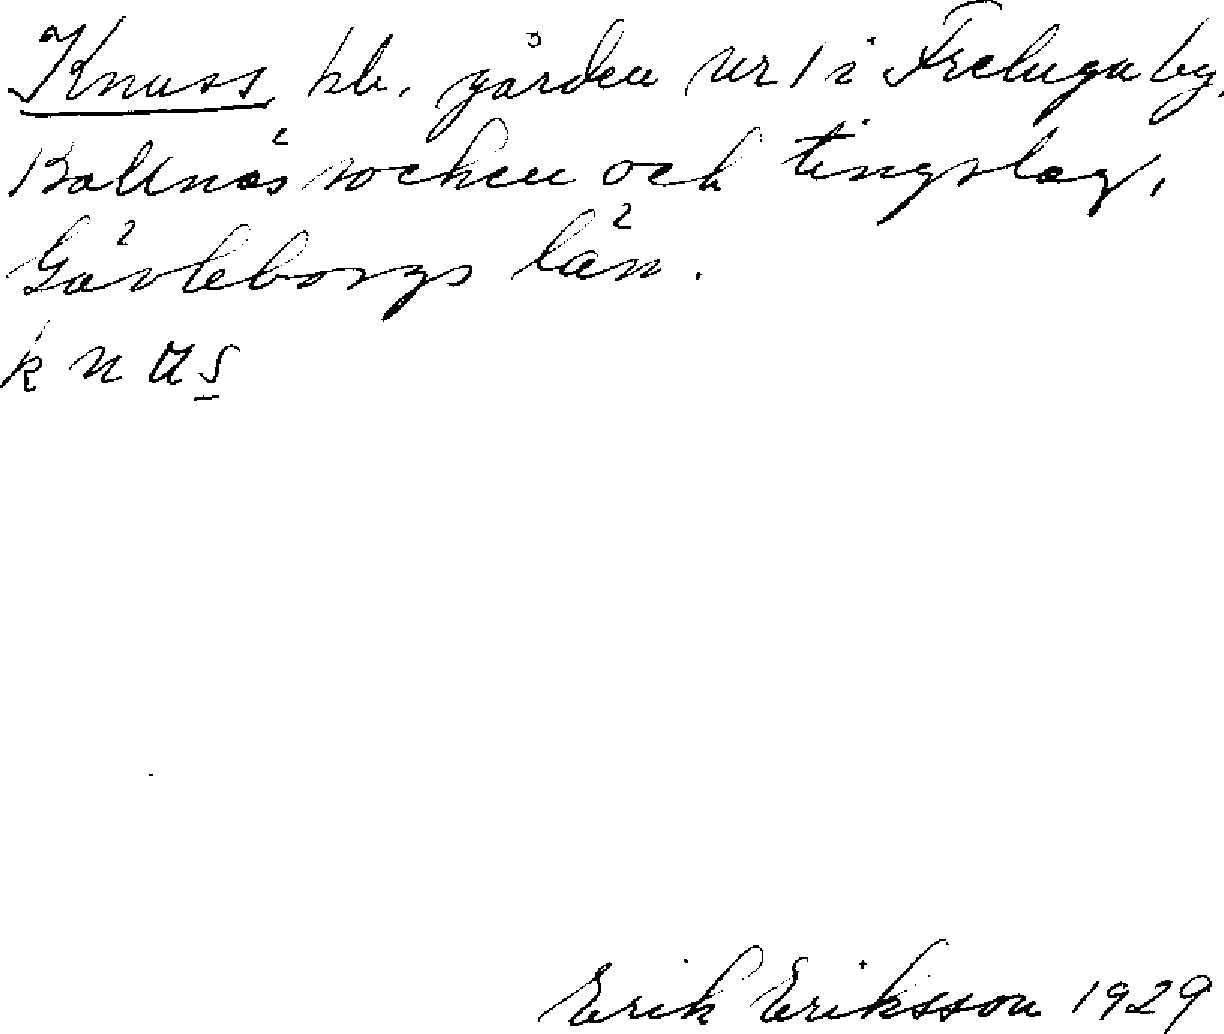 Knuss, hb. gården nr 1 i Freluga by,
Bollnäs socken och tingslag,
Gävleborgs län.
k n u s
Erik Eriksson 1929